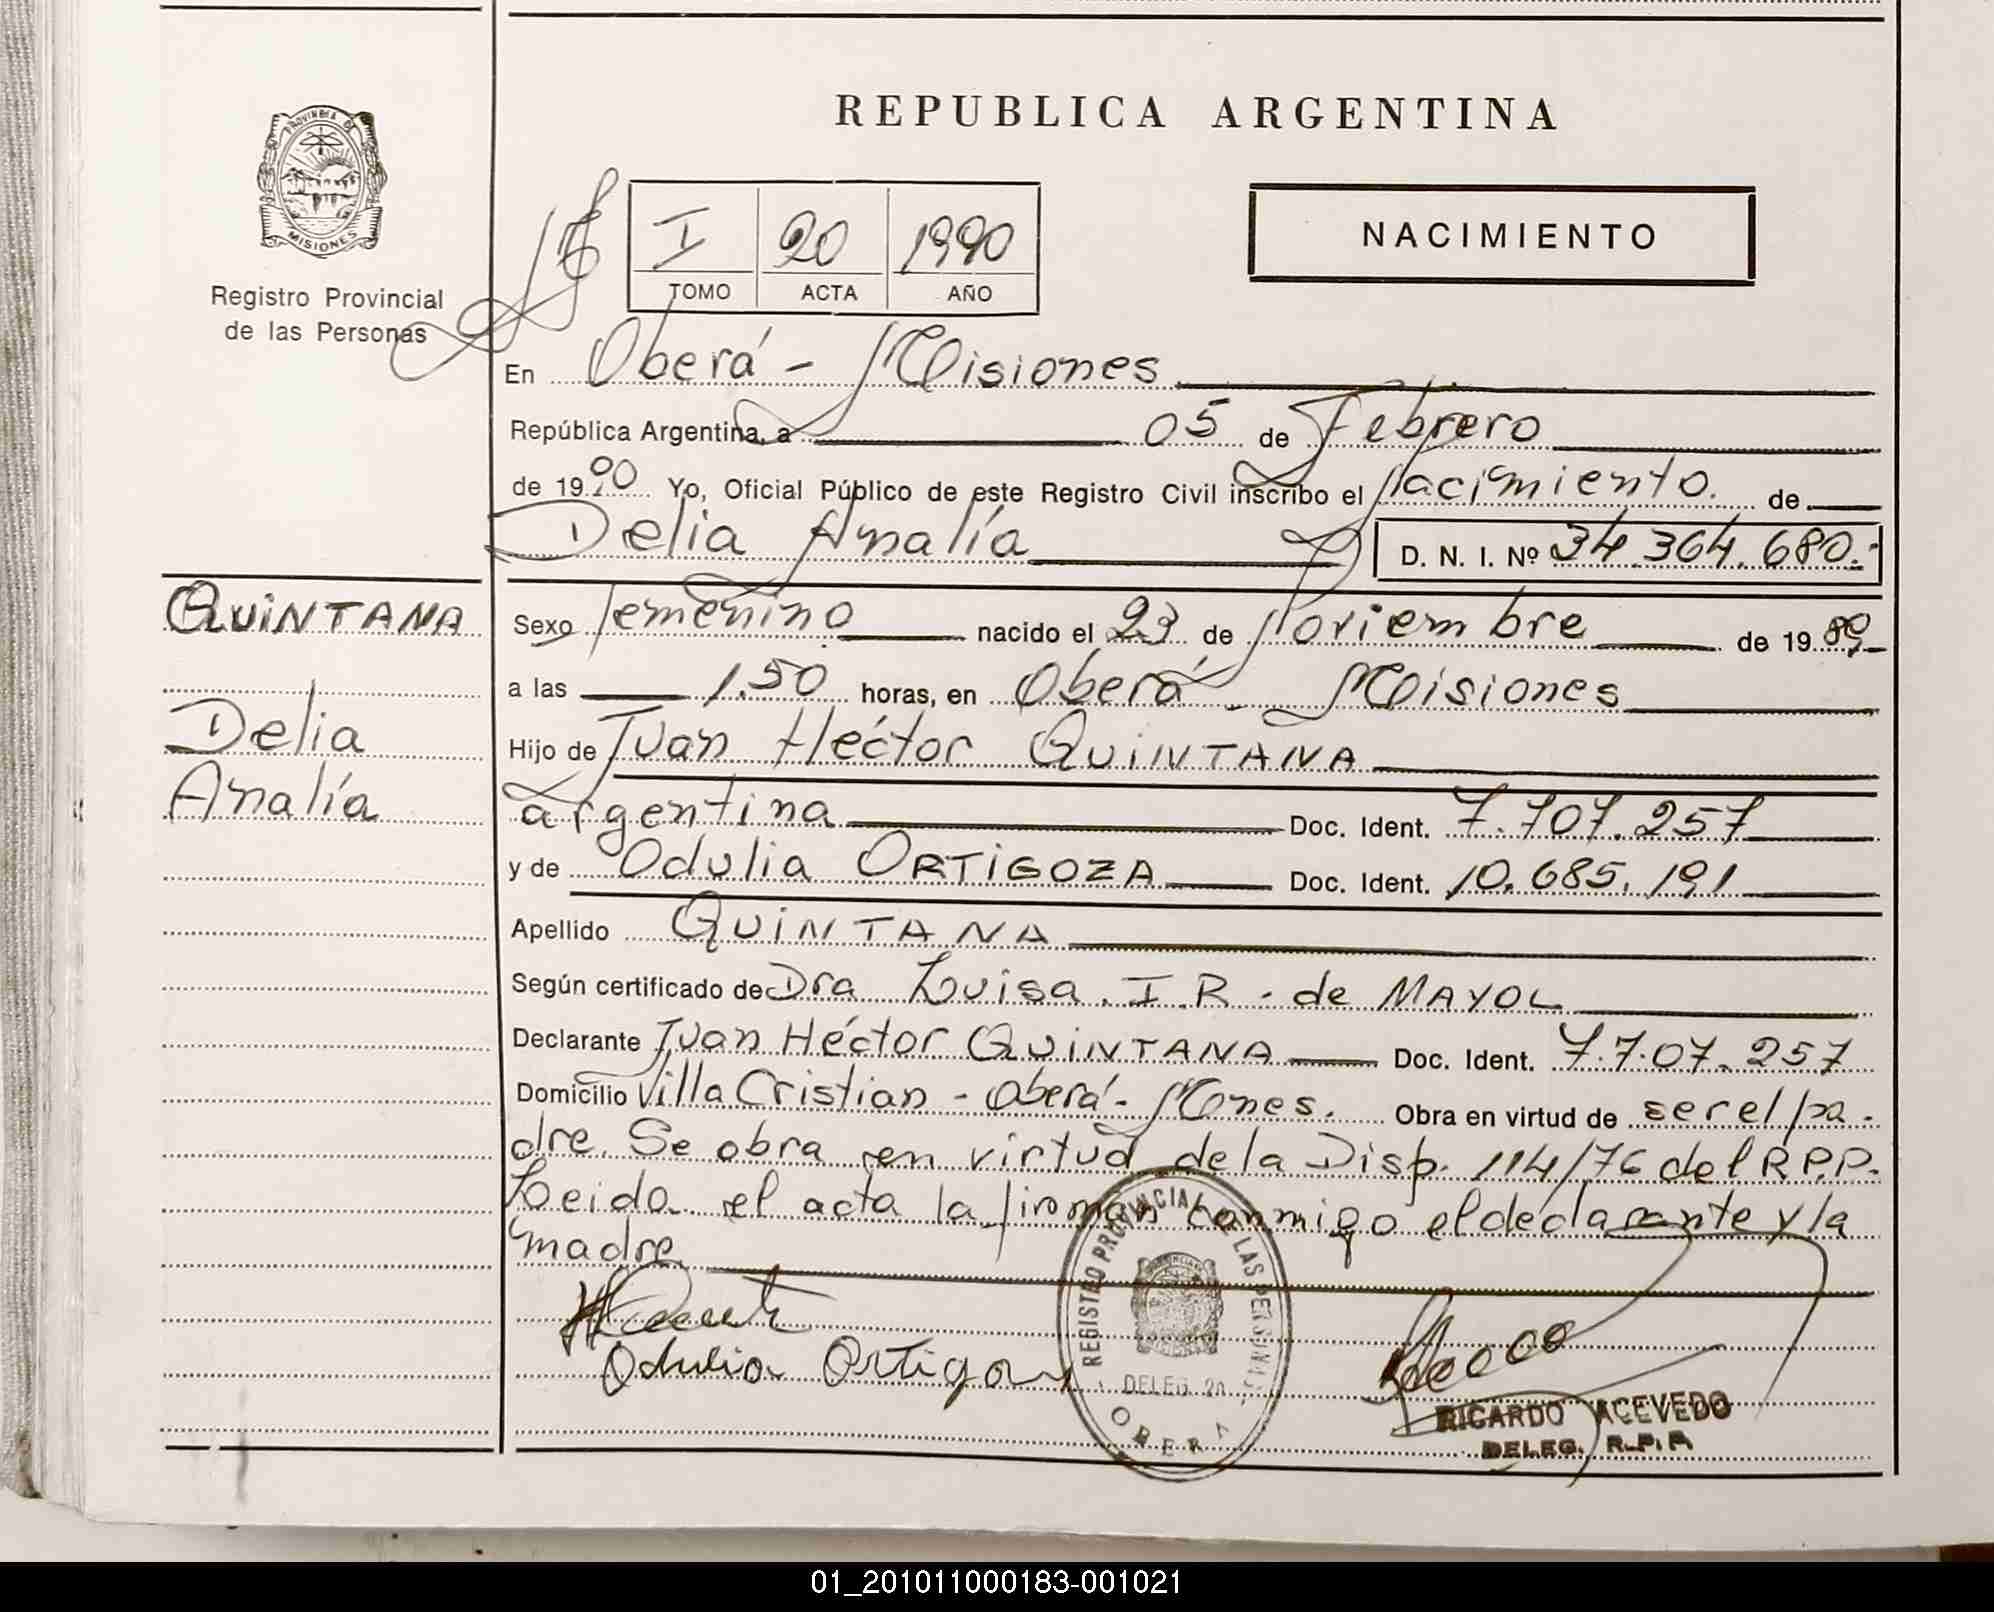 REPUBLICA ARGENTINA
PROVINCIA DE
MISIONES
Registro Provincial
de las Personas
I 20 1990
TOMO ACTA AÑO
NACIMIENTO
En Oberá - Misiones
República Argentina, a 05 de Febrero
de 1990 Yo, Oficial Público de este Registro Civil inscribo el Nacimiento. de
Delia Analía D. N. I. Nº 34.364.680.-
QUINTANA
Delia
Analía
Sexo femenino nacido el 23 de Noviembre de 1989-
a las 1.50 horas, en Oberá - Misiones
Hijo de Juan Héctor QUINTANA
argentina Doc. Ident. 7.707.257
y de Odulia ORTIGOZA Doc. Ident. 10.685.191
Apellido QUINTANA
Según certificado de Dra Luisa. I. R. de MAYOL
Declarante Juan Héctor QUINTANA Doc. Ident. 7.707.257
Domicilio Villa Cristian - Oberá - Mnes. Obra en virtud de ser el pa-
dre. Se obra en virtud de la Disp. 114/76 del R.P.P.
Leida el acta la firman conmigo el declarante y la
madre
Odulia Ortigoza
REGISTRO PROVINCIAL DE LAS PERSONAS
DELEG. 20
OBERA
RICARDO ACEVEDO
DELEG. R.P.P.
01_201011000183-001021